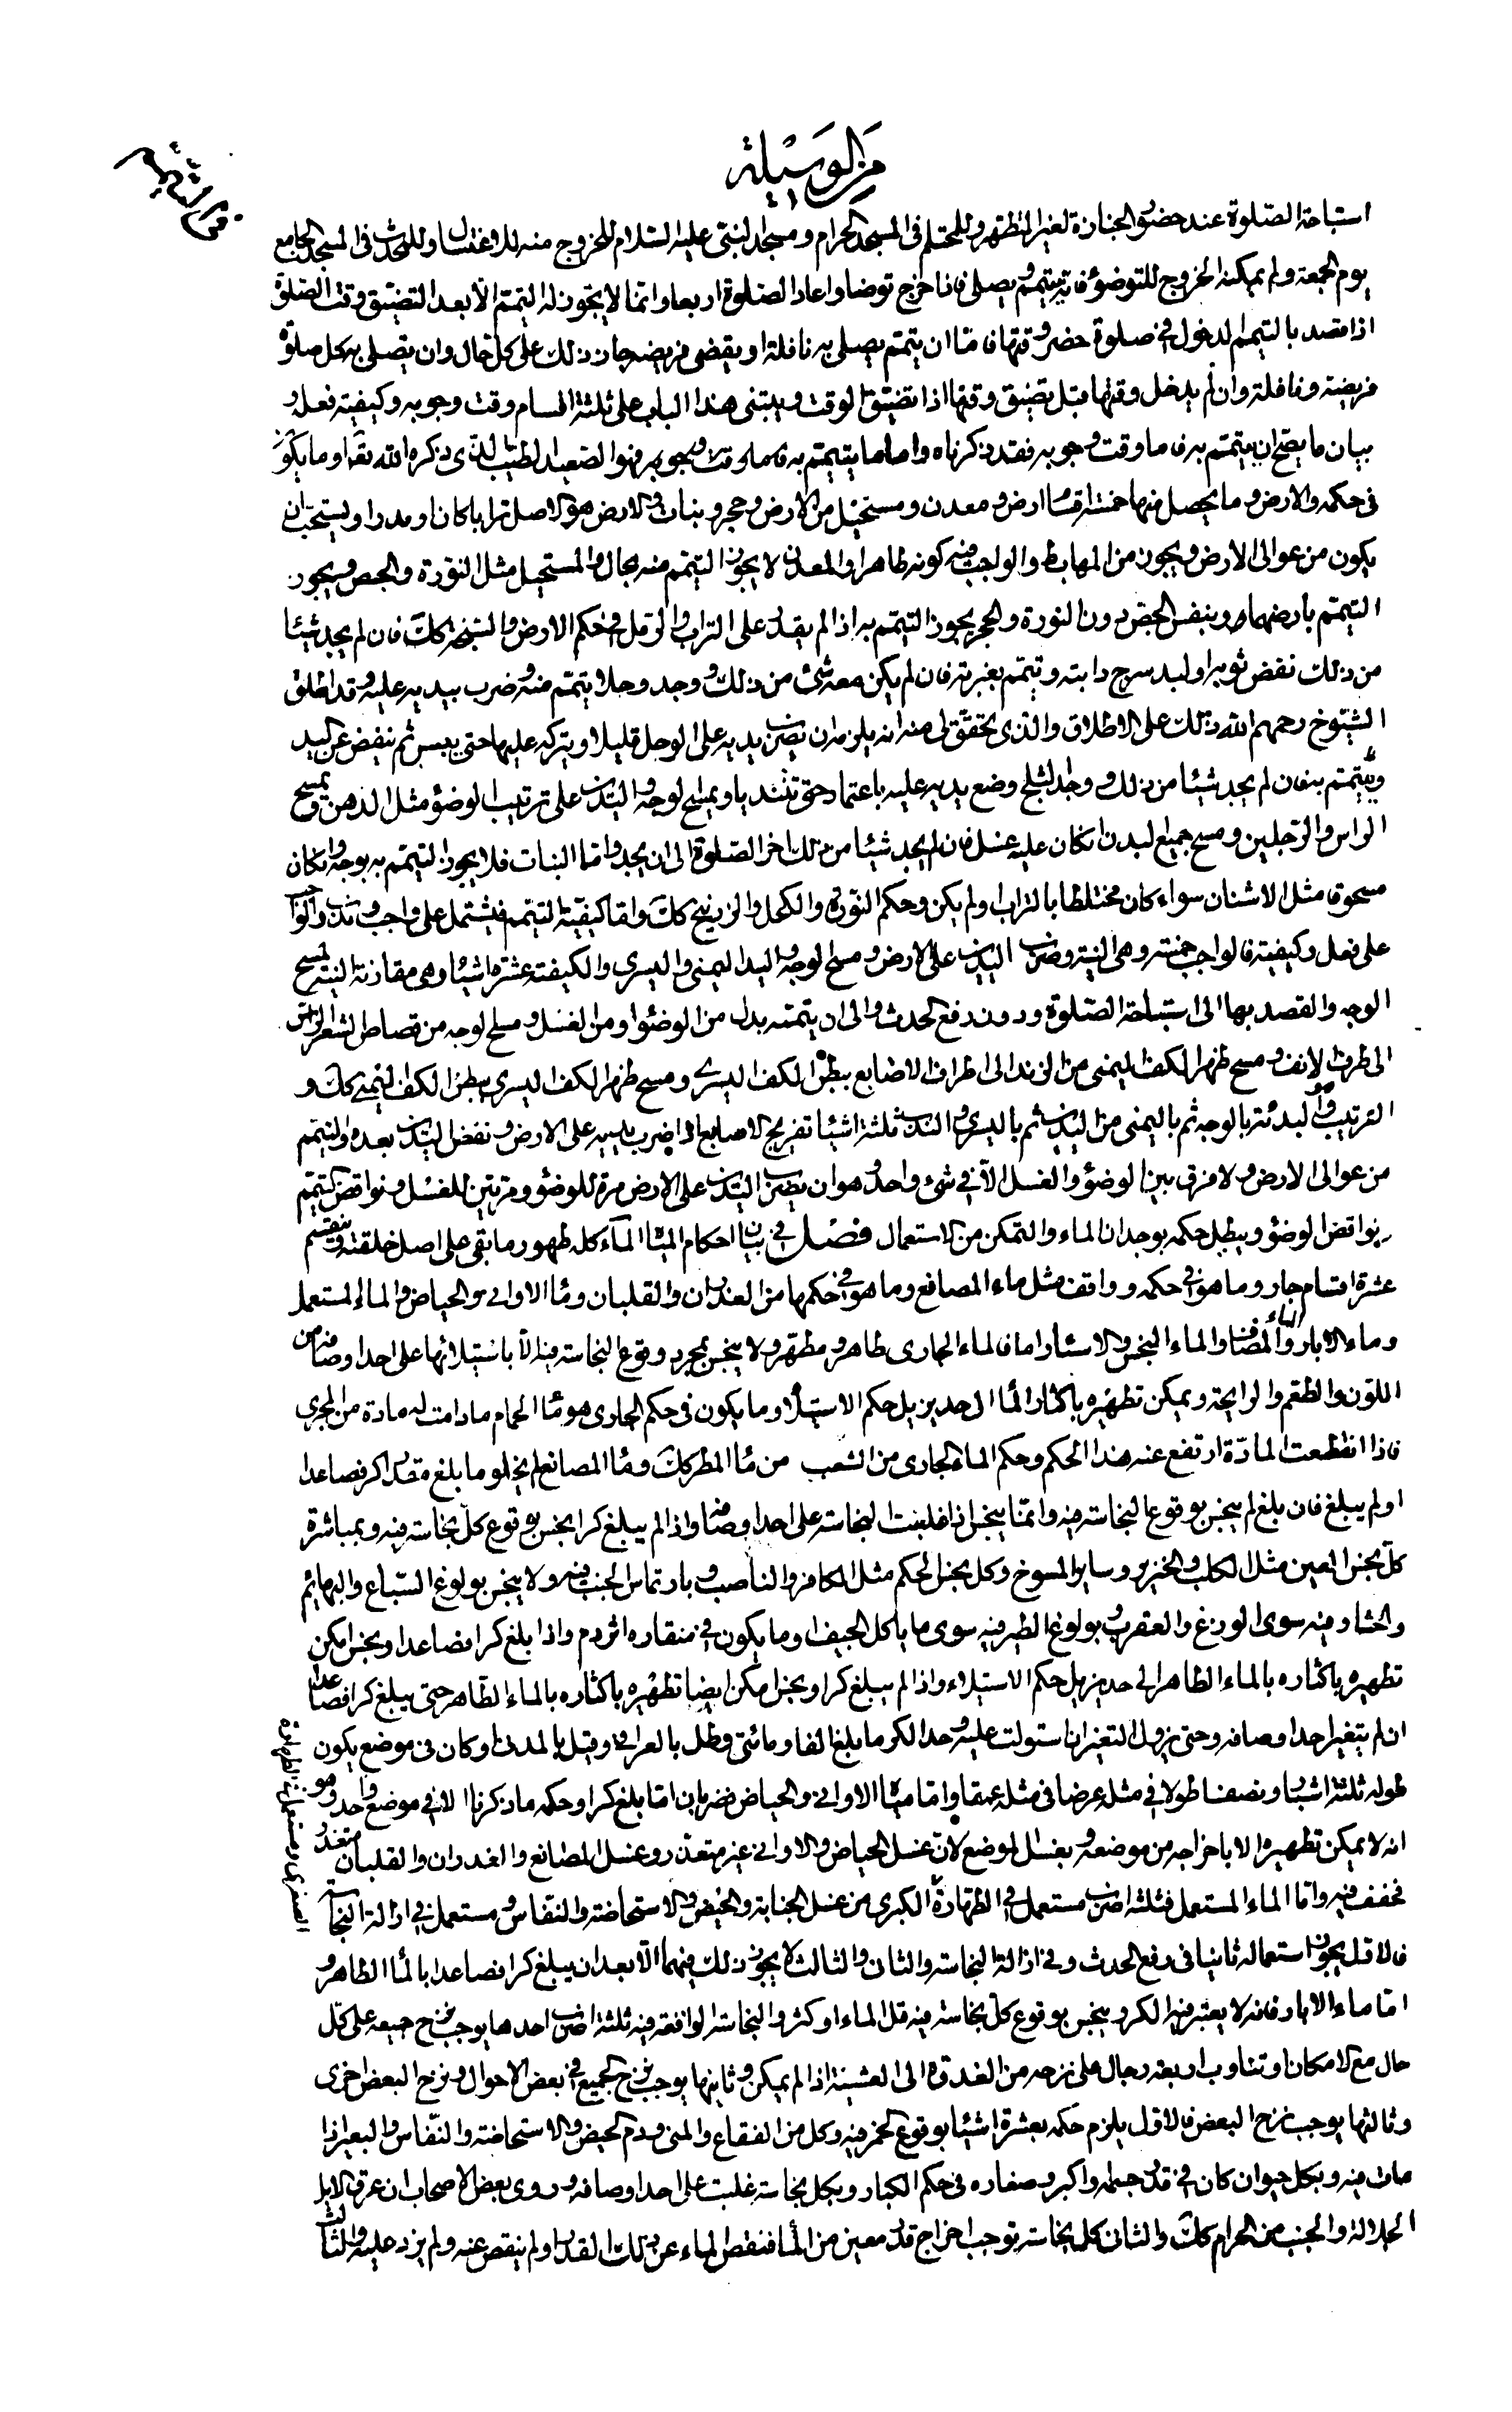 من الوسيلة
استباحة الصّلوة عند حضور الجنازة لغير المتطهر وللمحتلم فى المسجد الحرام ومسجد النبىّ عليه السّلام للخروج منه للاغتسال وللمحدث فى المسجد الجامع
يوم الجمعة ولم يمكنه الخروج للتوضؤ فانه يتيمّم ويصلى فاذا خرج توضا واعاد الصلوة اربعا وانّما لا يجوز له التيمّم الّا بعد التضيّق وقت الصّلوة
اذا قصد بالتيمم الدخول فى صلوة حضر وقتها فامّا ان يتيمّم يصلى به نافلة او يقضى فريضة جاز ذلك على كل حال وان يصلى به كل صلوة
فريضة ونافلة وان لم يدخل وقتها قبل تضيق وقتها اذا تضيّق الوقت ويبتنى هذا الباب على ثلثة اقسام وقت وجوبه وكيفية فعله و
بيان ما يصحّ ان يتيمّم به فاما وقت وجوبه فقد ذكرناه واما ما يتيمّم به فهو الصّعيد الطيّب الذى ذكره الله تعالى وما يكون
فى حكمه والارض وما يحصل منها خمسة اقسام ارض ومعدن ومستحيل من الارض وحجر ونبات فالارض هو الاصل ترابا كان او مدرا ويستحب ان
يكون من عوالى الارض ويجوز من المهابط والواجب فيه كونه طاهرا والمعدن لا يجوز التيمّم منه بحال والمستحيل مثل النورة والجص ويجوز
التيمّم بارضهما وبنفس الجص دون النورة والحجر يجوز التيمّم به اذا لم يقدر على التراب والرمل فى حكم الارض والسبخة كك فان لم يجد شيئا
من ذلك نفض ثوبه او لبد سرج دابته وتيمّم بغبرته فان لم يكن معه شئ من ذلك ووجد وحلا يتيمّم منه وضرب بيديه عليه وقد اطلق
الشيوخ رحمهم الله ذلك على الاطلاق والذى تحقّق لى منه انه يلزم ان يضرب يديه على الوحل قليلا ويتركه عليها حتى ييبس ثم ينفض عن اليد
ويتيمّم به فان لم يجد شيئا من ذلك ووجد الثلج وضع يديه عليه باعتماد حتى تتنديا ويمسح الوجه واليدين على ترتيب الوضؤ مثل الدهن ويمسح
الراس والرّجلين ومسح جميع البدن ان كان عليه غسل فان لم يجد شيئا من ذلك اخر الصّلوة الى ان يجد وامّا النبات فلا يجوز التيمّم به بوجه وان كان
مسحوقا مثل الاشنان سواء كان مختلطا بالتراب او لم يكن وحكم النورة والكحل والزرنيخ كك وامّا كيفيّة التيمّم فيشتمل على واجب وندب والواجب
على فعل وكيفية فالواجب خمسة وهى النية وضرب اليدين على الارض ومسح الوجه واليد اليمنى واليسرى والكيفية عشرة اشيا وهى مقارنة النية لمسح
الوجه والقصد بها الى استباحة الصّلوة دون رفع الحدث والى ان يتيمّمه بدل من الوضؤ او من الغسل ومسح الوجه من قصاص الشعر الراس
الى طرف الانف ومسح ظهر الكف اليمنى من الزند الى اطراف الاصابع ببطن الكف اليسرى ومسح ظهر الكف اليسرى ببطن الكف اليمنى كك و
الترتيب والبدئة بالوجه ثم باليمنى من اليدين ثم باليسرى والندب ثلثة اشيا تفريج الاصابع اذا ضرب بيديه على الارض ونفض اليدين بعده والتيمّم
من عوالى الارض ولا فرق بين الوضؤ والغسل الّا فى شئ واحد وهو ان يضرب اليدين على الارض مرة للوضؤ ومرتين للغسل ونواقض التيمّم
نواقض الوضؤ ويبطل حكمه بوجدان الماء والتمكن من الاستعمال فصل فى بيان احكام الميّا الماء كله طهور ما بقى على اصل خلقته وينقسم
عشرة اقسام جار وما هو فى حكمه وواقف مثل ماء المصانع وما هو فى حكمها من الغدران والقلبان وما الاوانى والحياض والماء المستعمل
وماء الابار والماء المضاف والماء النجس والاسئار اما فالماء الجارى طاهر ومطهر ولا ينجس بمجرد وقوع النجاسة فيه الّا باستيلائها على احد اوصافه من
اللون والطعم والرايحة ويمكن تطهيره باكثار الما الى حد يزيل حكم الاستيلا وما يكون فى حكم الجارى هو ما الحمام ما دامت له مادة من المجرى
فاذا انقطعت المادّة ارتفع عنه هذا الحكم وحكم الماء الجارى من الشعب من ما المطر كك وما المصانع لم يخلو ما بلغ مقدار كر فصاعدا
او لم يبلغ فان بلغ لم ينجس بوقوع النجاسة فيه وانّما ينجس اذا غلبت النجاسة على احد اوصافه واذا لم يبلغ كرا نجس بوقوع كل نجاسة فيه وبمباشرة
كل نجس العين مثل الكلب والخنزير وساير المسوخ وكل نجس الحكم مثل الكافر والناصب وبارتماس الجنب فيه ولا ينجس بولوغ السّباع والبهائم
والحشار فيه سوى الوزغ والعقرب وبولوغ الطير فيه سوى ما ياكل الجيف او ما يكون فى منقاره اثر دم واذا بلغ كرا فصاعدا ونجس امكن
تطهيره باكثاره بالماء الطاهر الى حد يزيل حكم الاستيلاء واذا لم يبلغ كرا ونجس امكن ايضا تطهيره باكثاره بالماء الطّاهر حتى يبلغ كرا فصاعدا
ان لم يتغير احد اوصافه وحتى يزول التغير ان استولت عليه وحد الكر ما بلغ الفا ومائتى رطل بالعراقى وقيل بالمدنى او كان فى موضع يكون
طوله ثلثة اشبار ونصفا طولا فى مثله عرضا فى مثله عمقا وامّا ميا الاوانى والحياض ضربان امّا بلغ كرا وحكمه ما ذكرنا الا فى موضع واحد وهو
انه لا يمكن تطهيره الا باخراجه من موضعه وبغسل الموضع لان غسل الحياض والاوانى غير متعذر وغسل المصانع والغدران والقلبان متعذر
فخفف فيه وامّا الماء المستعمل فثلثة اضرب مستعمل فى الطّهارة الكبرى من غسل الجنابة والحيض والاستحاضة والنفاس ومستعمل فى ازالة النجاسة
فالاول يجوز استعماله ثانيا فى رفع الحدث وفى ازالة النجاسة والثانى والثالث لا يجوز ذلك فيهما الّا بعد ان يبلغ كرا فصاعدا بالما الطاهر و
امّا ماء الابار فانه لا يعتبر فيه الكر وينجس بوقوع كل نجاسة فيه قل الماء او كثر والنجاسة الواقعة فيه ثلثة اضرب احدها يوجب نزح جميعه على كل
حال مع الامكان او تناوب اربعة رجال على نزحه من الغدوة الى العشية اذا لم يمكن وثانيها يوجب نزح الجميع فى بعض الاحوال ونزح البعض اخرى
وثالثها يوجب نزح البعض فالاول يلزم حكمه بعشرة اشيا بوقوع الخمر فيه وكل من الفقاع والمنى ودم الحيض والاستحاضة والنّفاس والبعير اذا
مات فيه وبكل حيوان كان فى قدر جسمه واكبر وصغاره فى حكم الكبار وبكل نجاسة غلبت على احد اوصافه وروى بعض الاصحاب ان عرق الابل
الجلالة والجنب من الحرام كك والثانى كل نجاسة توجب اخراج قدر معين من الما فنقص الماء عن ذلك القدر او لم ينقص عنه ولم يزد عليه والثالث